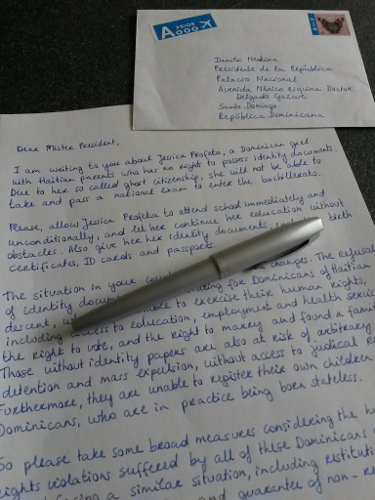 A PRIOR
Danilo Medina
Presidente de la República
Palacio Nacional
Avenida México esquina Doctor
Delgado Gazcue
Santo Domingo
República Dominicana
Dear Mister President,
I am writing to you about Jessica Profeta, a Dominican girl
with Haitian parents who has no right to possess identity documents.
Due to her so called ghost citizenship, she will not be able to
take and pass a national exam to enter the bachillerato.
Please, allow Jessica Profeta to attend school immediately and
unconditionally, and let her continue her education without
obstacles. Also give her her identity documents, birth
certificates, ID cards and passports.
The situation in your changes. The refusal
of identity for Dominicans of Haitian
descent, to exercise their human rights,
including access to education, employment and health
the right to vote, and the right to marry and found a
Those without identity papers are also at risk of arbitrary
detention and mass expulsion, without access to judicial
Furthermore, they are unable to register their own children
Dominicans, who are in practice being born stateless.
So please take some broad measures considering the
rights violations suffered by all of these Dominicans
facing a similar situation, including
and guarantee of non-